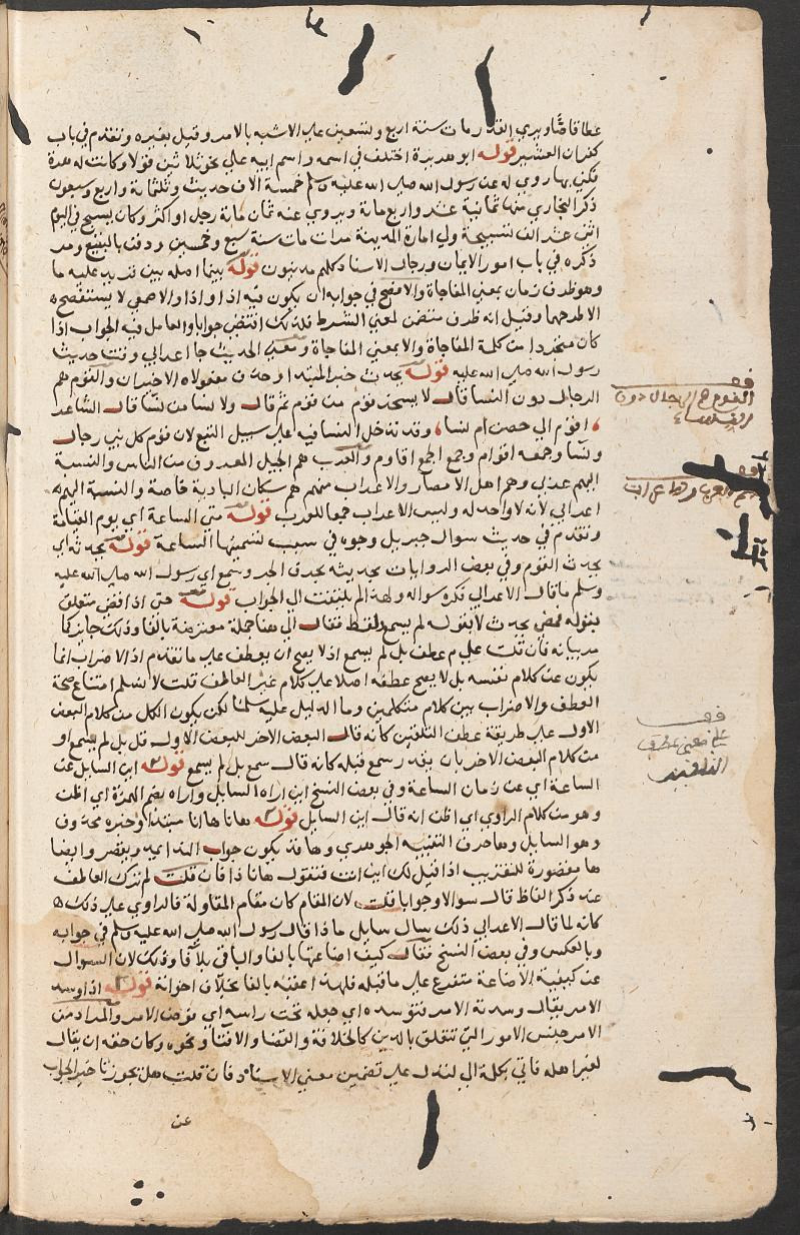 عطا قاضيا ويري القدر مات سنة اربع وتسعين علي الاشبه بالامر وقيل بغيره وتقدم في باب
كفران العشير قوله ابو هريرة اختلف في اسمه واسم ابيه علي نحو ثلاثين قولا وكانت له هرة
فكني بها روي له عن رسول الله صلى الله عليه وسلم خمسة الاف حديث وثلثمائة واربع وسبعون
ذكر البخاري منها ثمانية عشر واربع مائة ويروي عنه ثمان مائة رجل او اكثر وكان يسبح في اليوم
اثني عشر الف تسبيحة ولي امارة المدينة مرات مات سنة سبع وخمسين ودفن بالبقيع ومر
ذكره في باب امور الايمان ورجال الاسناد كلهم مدنيون قوله بينما اصله بين زيدت عليه ما
وهو ظرف زمان بمعني المفاجاة والافصح في جوابه ان يكون فيه اذا واذ والاصمعي لا يستفصح
الا طرحهما وقيل انه ظرف متضمن لمعني الشرط فلذلك اقتضي جوابا والعامل فيه الجواب اذا
كان مجردا من كلمة المفاجاة والا بمعني المفاجاة ومعني الحديث جا اعرابي وقت حديث
رسول الله صلى الله عليه قوله يحدث خبر المبتدا وحذف مفعولاه الاخيران والقوم هم
الرجال دون النسا قال لا يسخر قوم من قوم ثم قال ولا نسا من نسا قال الشاعر
اقوم ال حصن ام نسا وقد تدخل النسا فيه علي سبيل التبع لان قوم كل نبي رجال
ونسا وجمعه اقوام وجمع الجمع اقاوم والعرب هم الجيل المعروف من الناس والنسبة
اليهم عربي وهم اهل الامصار والاعراب منهم هم سكان البادية خاصة والنسبة اليهم
اعرابي لانه لا واحد له وليس الاعراب جمعا للعرب قوله متي الساعة اي يوم القيامة
وتقدم في حديث سوال جبريل وجوه في سبب تسميتها الساعة قوله يحدثه اي
يحدث القوم وفي بعض الروايات بحديثه بحرف الجر وسمع اي رسول الله صلى الله عليه
وسلم ما قال الاعرابي فكره سواله ولهذا لم يلتفت الي الجواب قوله حتى اذا قضي متعلق
بقوله فمضي يحدث لا بقوله لم يسمع ولفظ فقال الي هنا جملة معترضة بالفا وذلك جايز كما
مر بيانه فان قلت علي م عطف بل لم يسمع اذ لا يصح ان يعطف علي ما تقدم اذ الاضراب انما
يكون عن كلام نفسه بل لا يصح عطفه اصلا علي كلام غير العاطف قلت لا نسلم امتناع صحة
العطف والاضراب بين كلام متكلمين وما الدليل عليه سلمنا لكن يكون الكل من كلام البعض
الاول علي طريقة عطف التلقين كانه قال البعض الاخر للبعض الاول قل بل لم يسمع او
من كلام البعض الاخر بان يقدر سمع قبله كانه قال سمع بل لم يسمع قوله اين السايل عن
الساعة اي عن زمان الساعة وفي بعض النسخ اين اراه السايل واراه بضم الهمزة اي اظن
وهو من كلام الراوي اي اظن انه قال اين السايل قوله ها انا ها انا مبتدا وخبره محذوف
وهو السايل وها حرف التنبيه الجوهري وها قد يكون جواب الندا يمد ويقصر وايضا
ها مقصورة للتقريب اذا قيل لك اين انت فتقول ها انا ذا فان قلت لم ترك العاطف
عند ذكر الفاظ قال سوالا وجوابا قلت لان المقام كان مقام المقاولة فالراوي علي ذلك
كانه لما قال الاعرابي ذلك سال سايل ماذا قال رسول الله صلى الله عليه وسلم في جوابه
وبالعكس وفي بعض النسخ فقال كيف اضاعتها بالفا والباقي بلا فا وذلك لان السوال
عن كيفية الاضاعة متفرع علي ما قبله فلهذا عقبه بالفا بخلاف اخواته قوله اذا وسد
الامر يقال وسدته الامر فتوسده اي جعله تحت راسه اي فوض الامر والمراد من
الامر جنس الامور التي تتعلق بالدين كالخلافة والقضا والافتا ونحوه وكان حقه ان يقال
لغير اهله فاتي بكلمة الي لتدل علي تضمين معني الاسناد فان قلت هل يجوز اذا خبر الجواب
عن
القوم هم الرجال دون
النساء